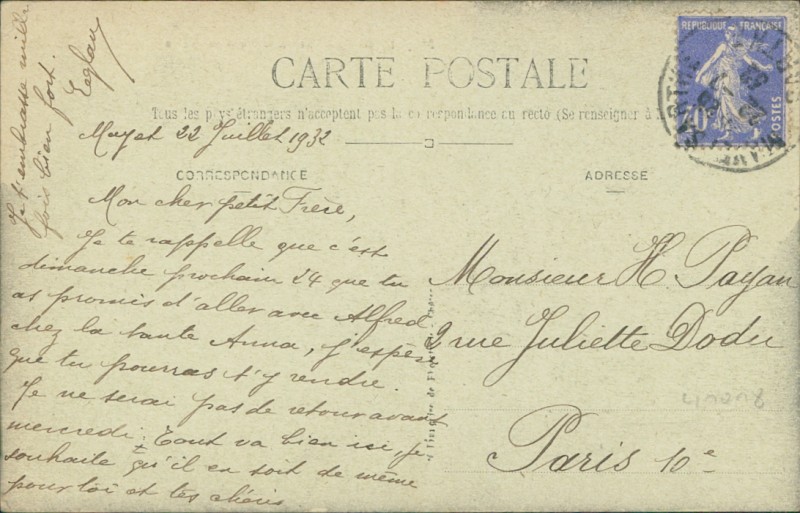 CARTE POSTALE
Tous les pays étrangers n'acceptent pas la correspondance au recto (Se renseigner à
Mayet 22 Juillet 1932
CORRESPONDANCE
Mon cher petit Frère,
Je te rappelle que c'est
dimanche prochain 24 que tu
as promis d'aller avec Alfred
chez la tante Anna, j'espère
que tu pourras t'y rendre.
Je ne serai pas de retour avant
mercredi. Tout va bien ici, je
souhaite qu'il en soit de même
pour toi et tes chéris
Je t'embrasse mille
fois bien fort.
ADRESSE
Monsieur H. Payan
2 rue Juliette Dodu
Paris 10e
RÉPUBLIQUE FRANÇAISE
POSTES